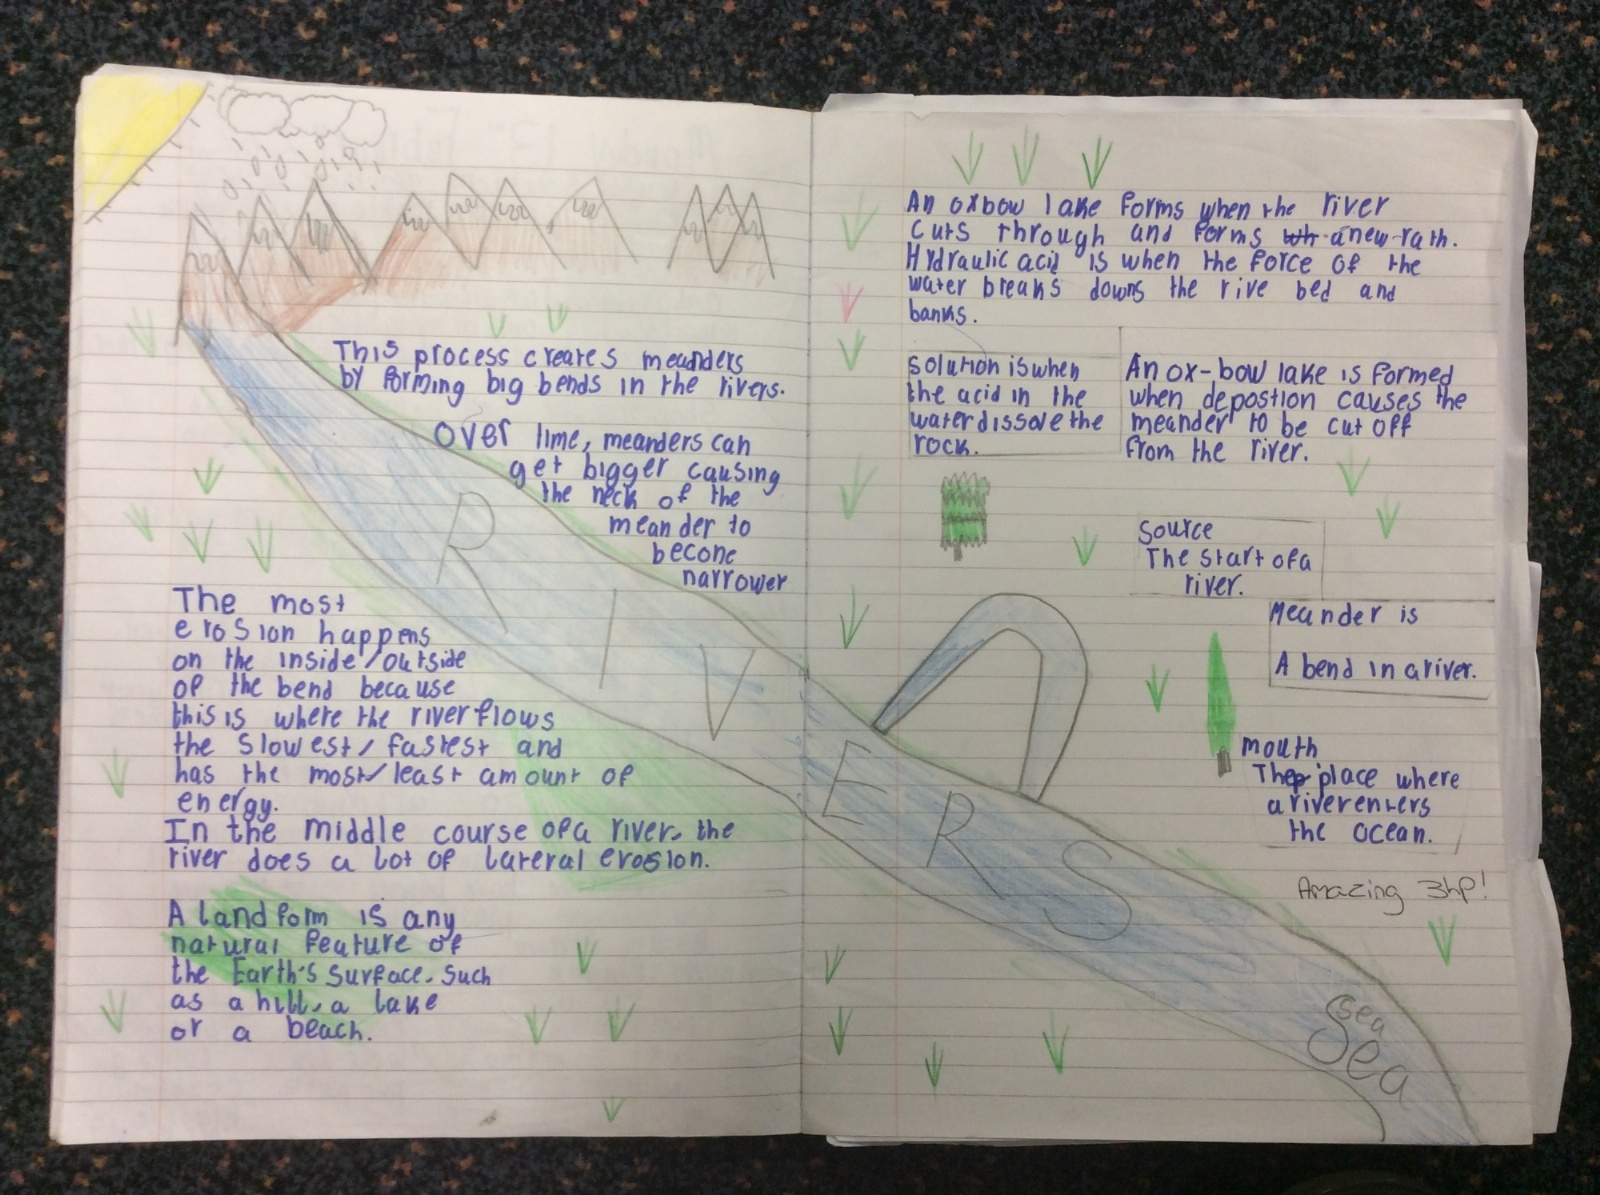 This process creates meanders
by forming big bends in the rivers.
Over lime, meanders can
get bigger causing
the neck of the
meander to
becone
narrower
The most
erosion happens
on the inside/outside
of the bend because
this is where the river flows
the slowest/fastest and
has the most/least amount of
energy.
In the middle course of a river, the
river does a lot of lateral erosion.
A landform is any
natural feature of
the Earth's surface. Such
as a hill, a lake
or a beach.
RIVERS
An oxbow lake forms when the river
cuts through and forms wh a new path.
Hydraulic acid is when the force of the
water breaks downs the rive bed and
banks.
solution is when
the acid in the
water dissolve the
rock.
An ox-bow lake is formed
when depostion causes the
meander to be cut off
from the river.
Source
The start of a
river.
Meander is
A bend in a river.
mouth
The place where
a river enters
the ocean.
Amazing 3hp!
Sea
Sea